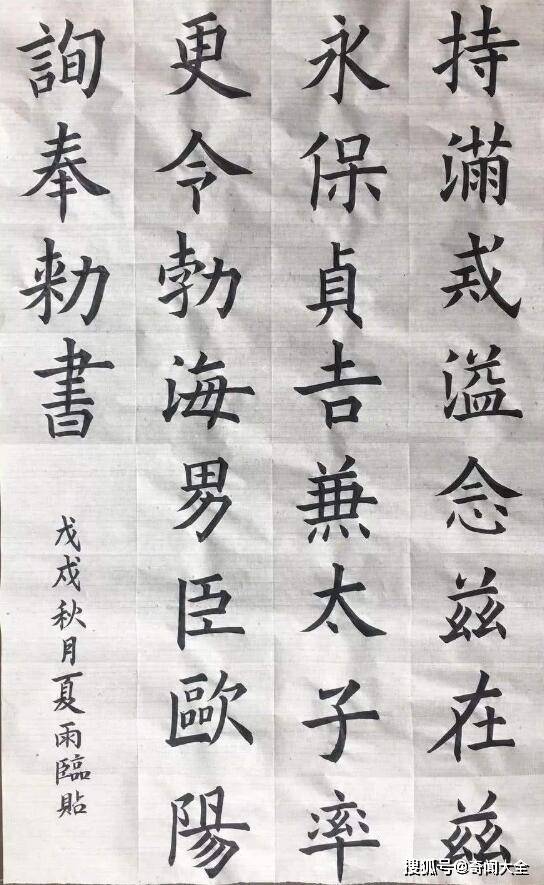 持滿戒溢念兹在兹
永保貞吉兼太子率
更令勃海男臣歐陽
詢奉勑書
戊戌秋月夏雨臨貼
搜狐号@奇闻大全